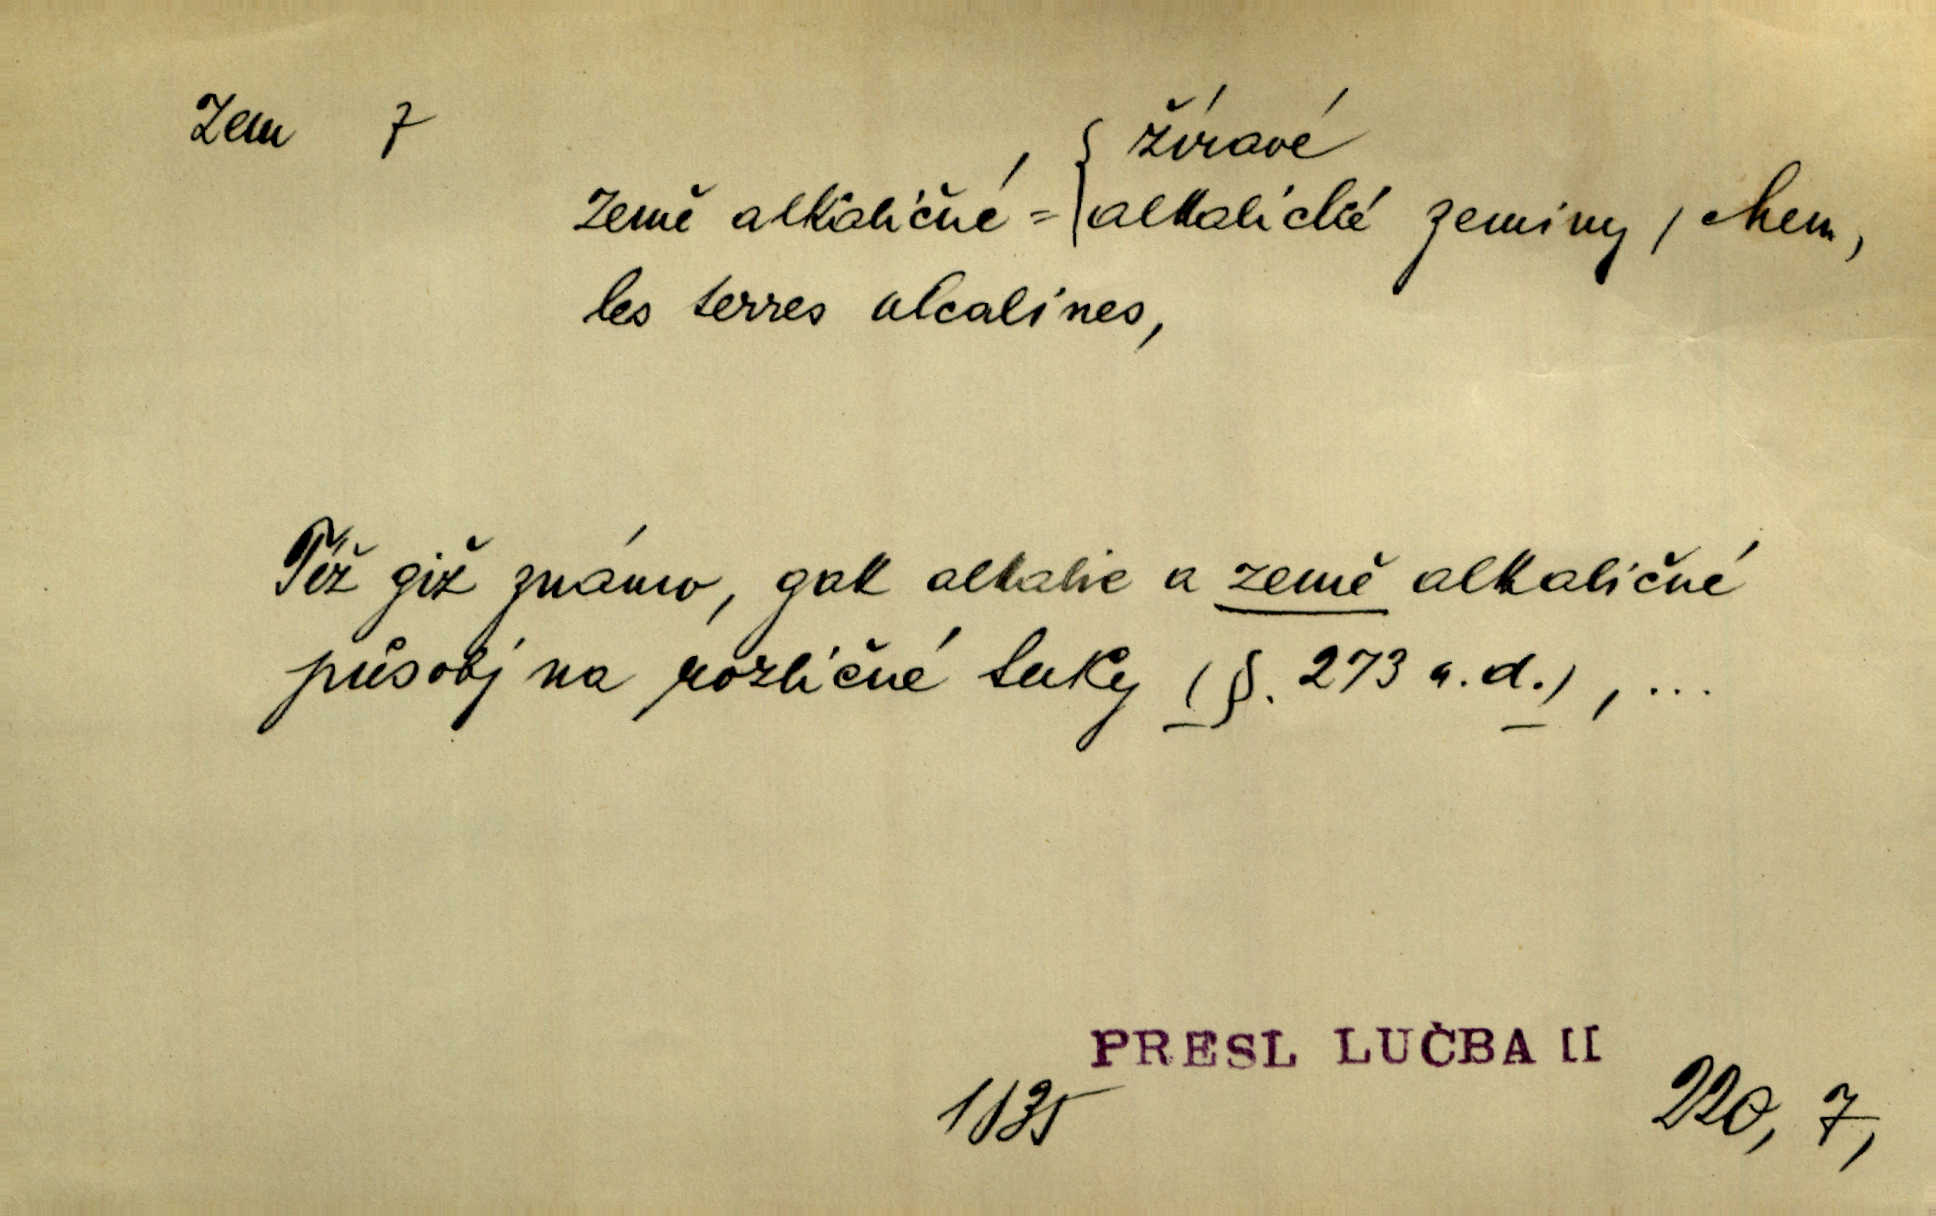 Zem 7
žíravé
země alkaličné = { alkalické zeminy, chem,
les terres alcalines,
Též giž známo, gak alkalie a země alkaličné
působj na rozličné tuky (§. 273 a. d.), ...
PRESL LUČBA II
1835
220, 7,